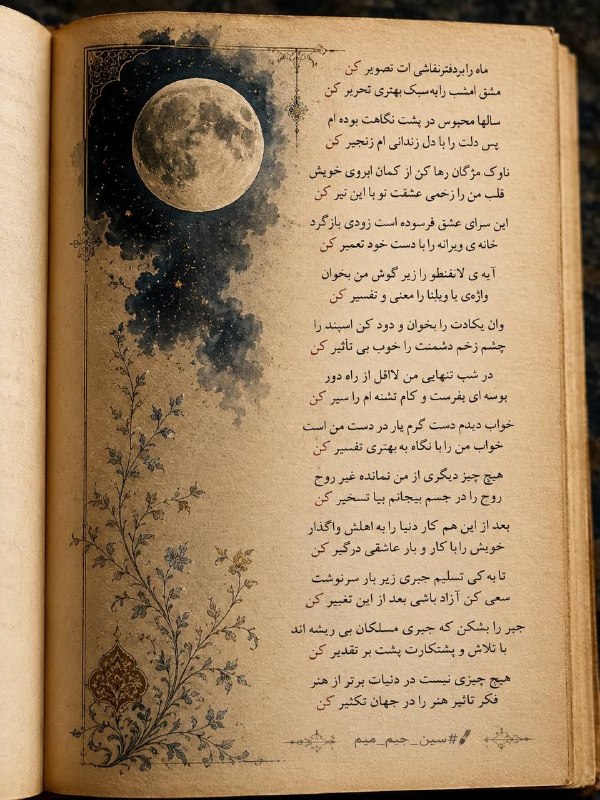 ماه را بر دفتر نقاشی ات تصویر کن
مشق امشب را به سبک بهتری تحریر کن
سالها محبوس در پشت نگاهت بوده ام
پس دلت را با دل زندانی ام زنجیر کن
ناوک مژگان رها کن از کمان ابروی خویش
قلب من را زخمی عشقت تو با این تیر کن
این سرای عشق فرسوده است زودی بازگرد
خانه ی ویرانه را با دست خود تعمیر کن
آیه ی لاتقنطو را زیر گوش من بخوان
واژه‌ی یا ویلنا را معنی و تفسیر کن
وان یکادت را بخوان و دود کن اسپند را
چشم زخم دشمنت را خوب بی تأثیر کن
در شب تنهایی من لااقل از راه دور
بوسه ای بفرست و کام تشنه ام را سیر کن
خواب دیدم دست گرم یار در دست من است
خواب من را با نگاه به بهتری تفسیر کن
هیچ چیز دیگری از من نمانده غیر روح
روح را در جسم بیجانم بیا تسخیر کن
بعد از این هم کار دنیا را به اهلش واگذار
خویش را با کار و بار عاشقی درگیر کن
تا به کی تسلیم جبری زیر بار سرنوشت
سعی کن آزاد باشی بعد از این تغییر کن
جبر را بشکن که جبری مسلکان بی ریشه اند
با تلاش و پشتکارت پشت بر تقدیر کن
هیچ چیزی نیست در دنیات برتر از هنر
فکر تاثیر هنر را در جهان تکثیر کن
#سین_جیم_میم